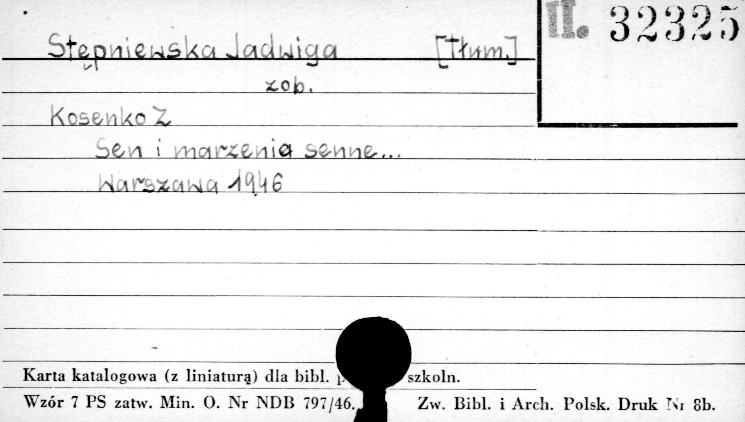 II. 32325
Stępniewska Jadwiga [Tłum.]
zob.
Kosenko Z
Sen i marzenia senne...
Warszawa 1946
Karta katalogowa (z liniaturą) dla bibl. szkoln.
Wzór 7 PS zatw. Min. O. Nr NDB 797/46. Zw. Bibl. i Arch. Polsk. Druk Nr 8b.